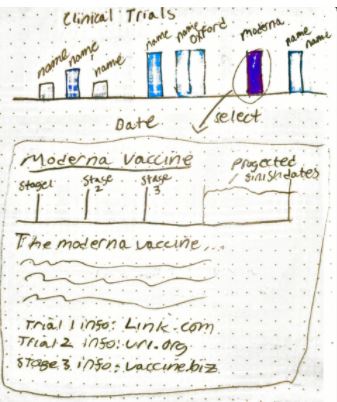 Clinical Trials
name name name name name Oxford moderna name name
Date select
Moderna Vaccine
Stage1 Stage 2 Stage 3 Projected finish dates
The moderna vaccine...
Trial 1 info: Link.com
Trial 2 info: url.org
Stage 3 info: vaccine.biz